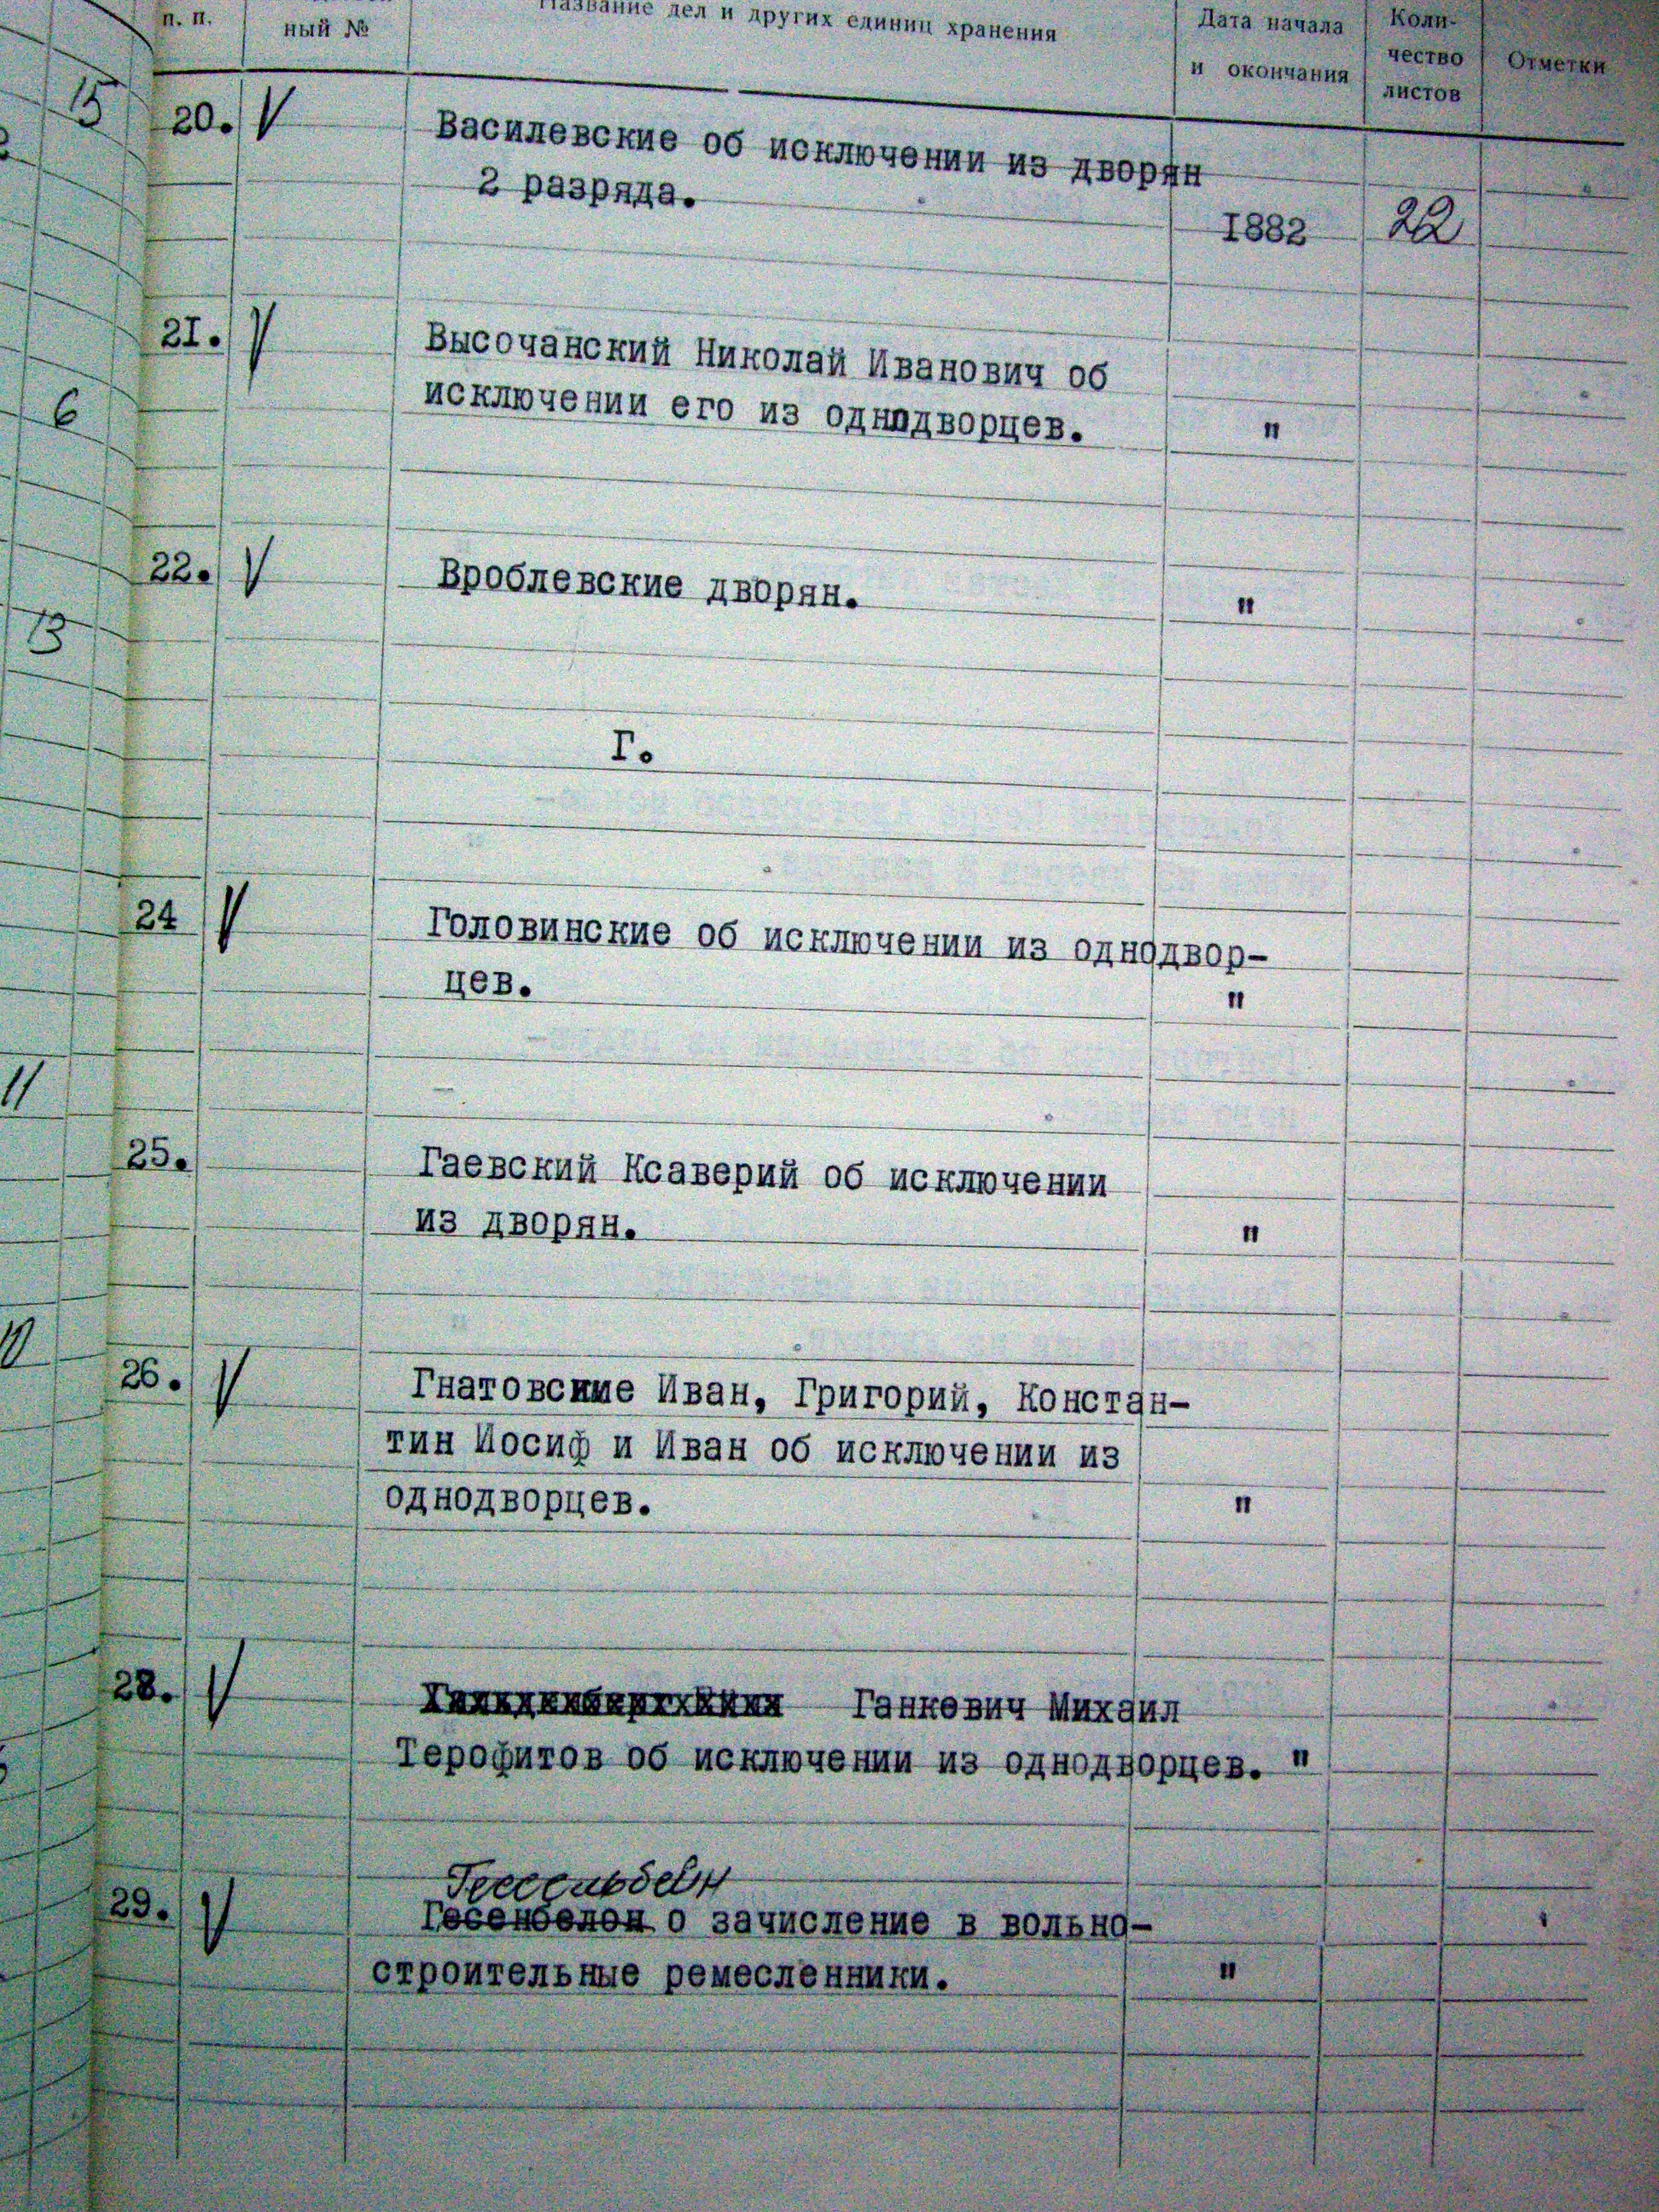 п. п. ный № Название дел и других единиц хранения Дата начала и окончания Коли-чество листов Отметки
15 20. V Василевские об исключении из дворян
2 разряда.
1882 22
21. V Высочанский Николай Иванович об
исключении его из однадворцев. "
6
22. V Вроблевские дворян. "
13
Г.
24 V Головинские об исключении из однодвор-
цев. "
11
25. Гаевский Ксаверий об исключении
из дворян. "
26. V Гнатовские Иван, Григорий, Констан-
тин Иосиф и Иван об исключении из
однодворцев. "
28. V Ганкевич Михаил
Терофитов об исключении из однодворцев. "
29. V Гесенбелон о зачисление в вольно-
строительные ремесленники. "